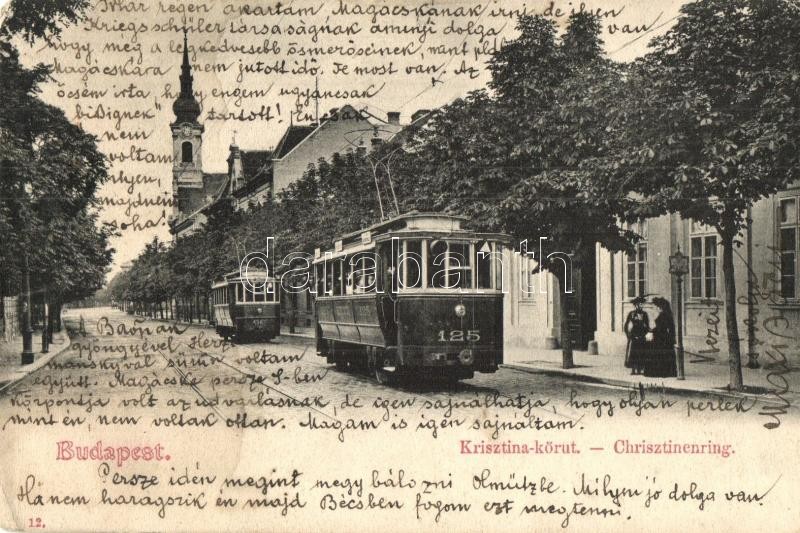 Ihár régen akartam Magácskának írni de ilyen
Kriegsschüler társaságnak annyi dolga van
hogy még a legkedvesebb ősmerőseinek, mint pld.
Magácskára nem jutott idő. Te most van. Az
öcsém írta, hogy engem ugyancsak
"bißignek" tartott! Én csak
nem
voltam
ilyen,
majdnem
soha!
databanth
125
A Baopan
gyöngyével Herz-
mánskyval sürün voltam
együtt. Magácska persze S-ben
központja volt az udvarlásnak de igen sajnálhatja, hogy olyan perlek
mint én, nem voltak ottan. Magam is igen sajnáltam.
Budapest.
Krisztina-körut. — Chrisztinenring.
Persze idén megint megy bálozni Olmützbe. Milyen jó dolga van.
Ha nem haragszik én majd Bécsben fogom ezt megtenni.
12.